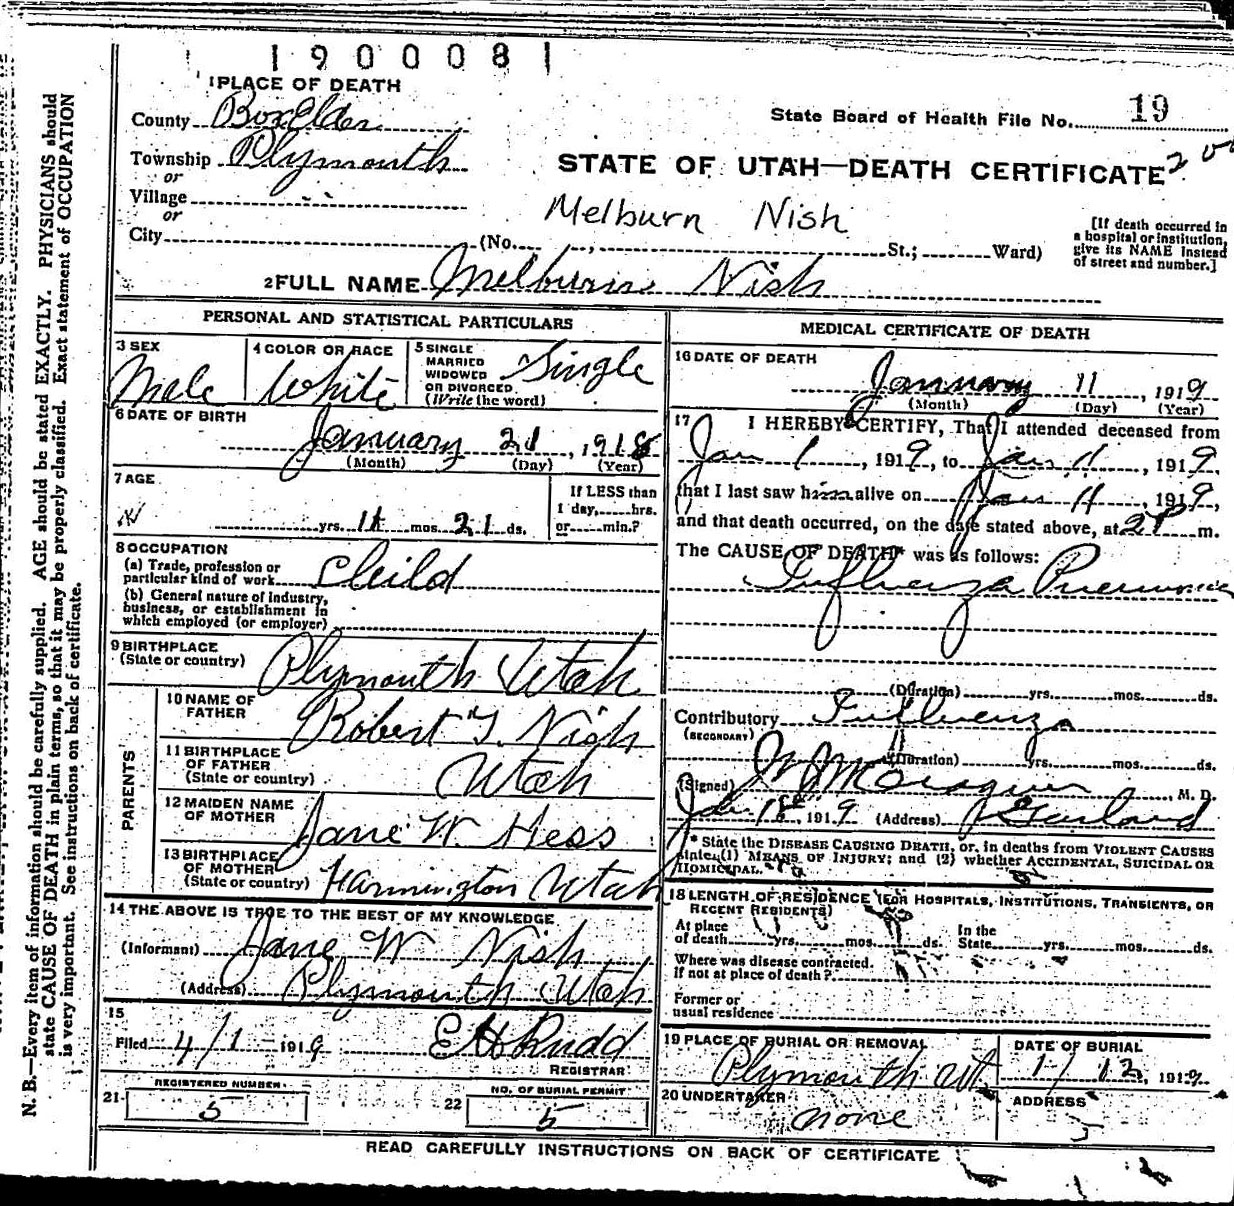 1900081
1 PLACE OF DEATH
County Box Elder
State Board of Health File No. 19
Township Plymouth
or
STATE OF UTAH—DEATH CERTIFICATE
Village
or
Melburn Nish
City (No. , St.; Ward)
[If death occurred in a hospital or institution, give its NAME instead of street and number.]
2 FULL NAME Melburn Nish
PERSONAL AND STATISTICAL PARTICULARS
3 SEX Male
4 COLOR OR RACE White
5 SINGLE MARRIED WIDOWED OR DIVORCED (Write the word) Single
6 DATE OF BIRTH
January 21, 1918
(Month) (Day) (Year)
7 AGE
yrs. 11 mos. 21 ds.
If LESS than 1 day, hrs. or min.?
8 OCCUPATION
(a) Trade, profession or particular kind of work Child
(b) General nature of industry, business, or establishment in which employed (or employer)
9 BIRTHPLACE (State or country) Plymouth Utah
PARENTS
10 NAME OF FATHER Robert T. Nish
11 BIRTHPLACE OF FATHER (State or country) Utah
12 MAIDEN NAME OF MOTHER Jane W Hess
13 BIRTHPLACE OF MOTHER (State or country) Farmington Utah
14 THE ABOVE IS TRUE TO THE BEST OF MY KNOWLEDGE
(Informant) Jane W Nish
(Address) Plymouth Utah
15
Filed 4/1 1919 E H Rudd
REGISTRAR
REGISTERED NUMBER
21 5
NO. OF BURIAL PERMIT
22 5
MEDICAL CERTIFICATE OF DEATH
16 DATE OF DEATH
January 11, 1919
(Month) (Day) (Year)
17 I HEREBY CERTIFY, That I attended deceased from
Jan 1, 1919, to Jan 11, 1919,
that I last saw him alive on Jan 11, 1919,
and that death occurred, on the date stated above, at 2 P m.
The CAUSE OF DEATH* was as follows:
Influenza Pneumonia
(Duration) yrs. mos. ds.
Contributory Influenza
(SECONDARY)
(Duration) yrs. mos. ds.
(Signed) , M. D.
Jan 18, 1919 (Address) Garland
* State the DISEASE CAUSING DEATH, or, in deaths from VIOLENT CAUSES
state (1) MEANS OF INJURY; and (2) whether ACCIDENTAL, SUICIDAL OR
HOMICIDAL.
18 LENGTH OF RESIDENCE (FOR HOSPITALS, INSTITUTIONS, TRANSIENTS, OR
RECENT RESIDENTS)
At place of death yrs. mos. ds. In the State yrs. mos. ds.
Where was disease contracted, if not at place of death?
Former or usual residence
19 PLACE OF BURIAL OR REMOVAL
Plymouth Ut
DATE OF BURIAL
1/12, 1919
20 UNDERTAKER
none
ADDRESS
READ CAREFULLY INSTRUCTIONS ON BACK OF CERTIFICATE
N. B.—Every item of information should be carefully supplied. AGE should be stated EXACTLY. PHYSICIANS should
state CAUSE OF DEATH in plain terms, so that it may be properly classified. Exact statement of OCCUPATION
is very important. See instructions on back of certificate.